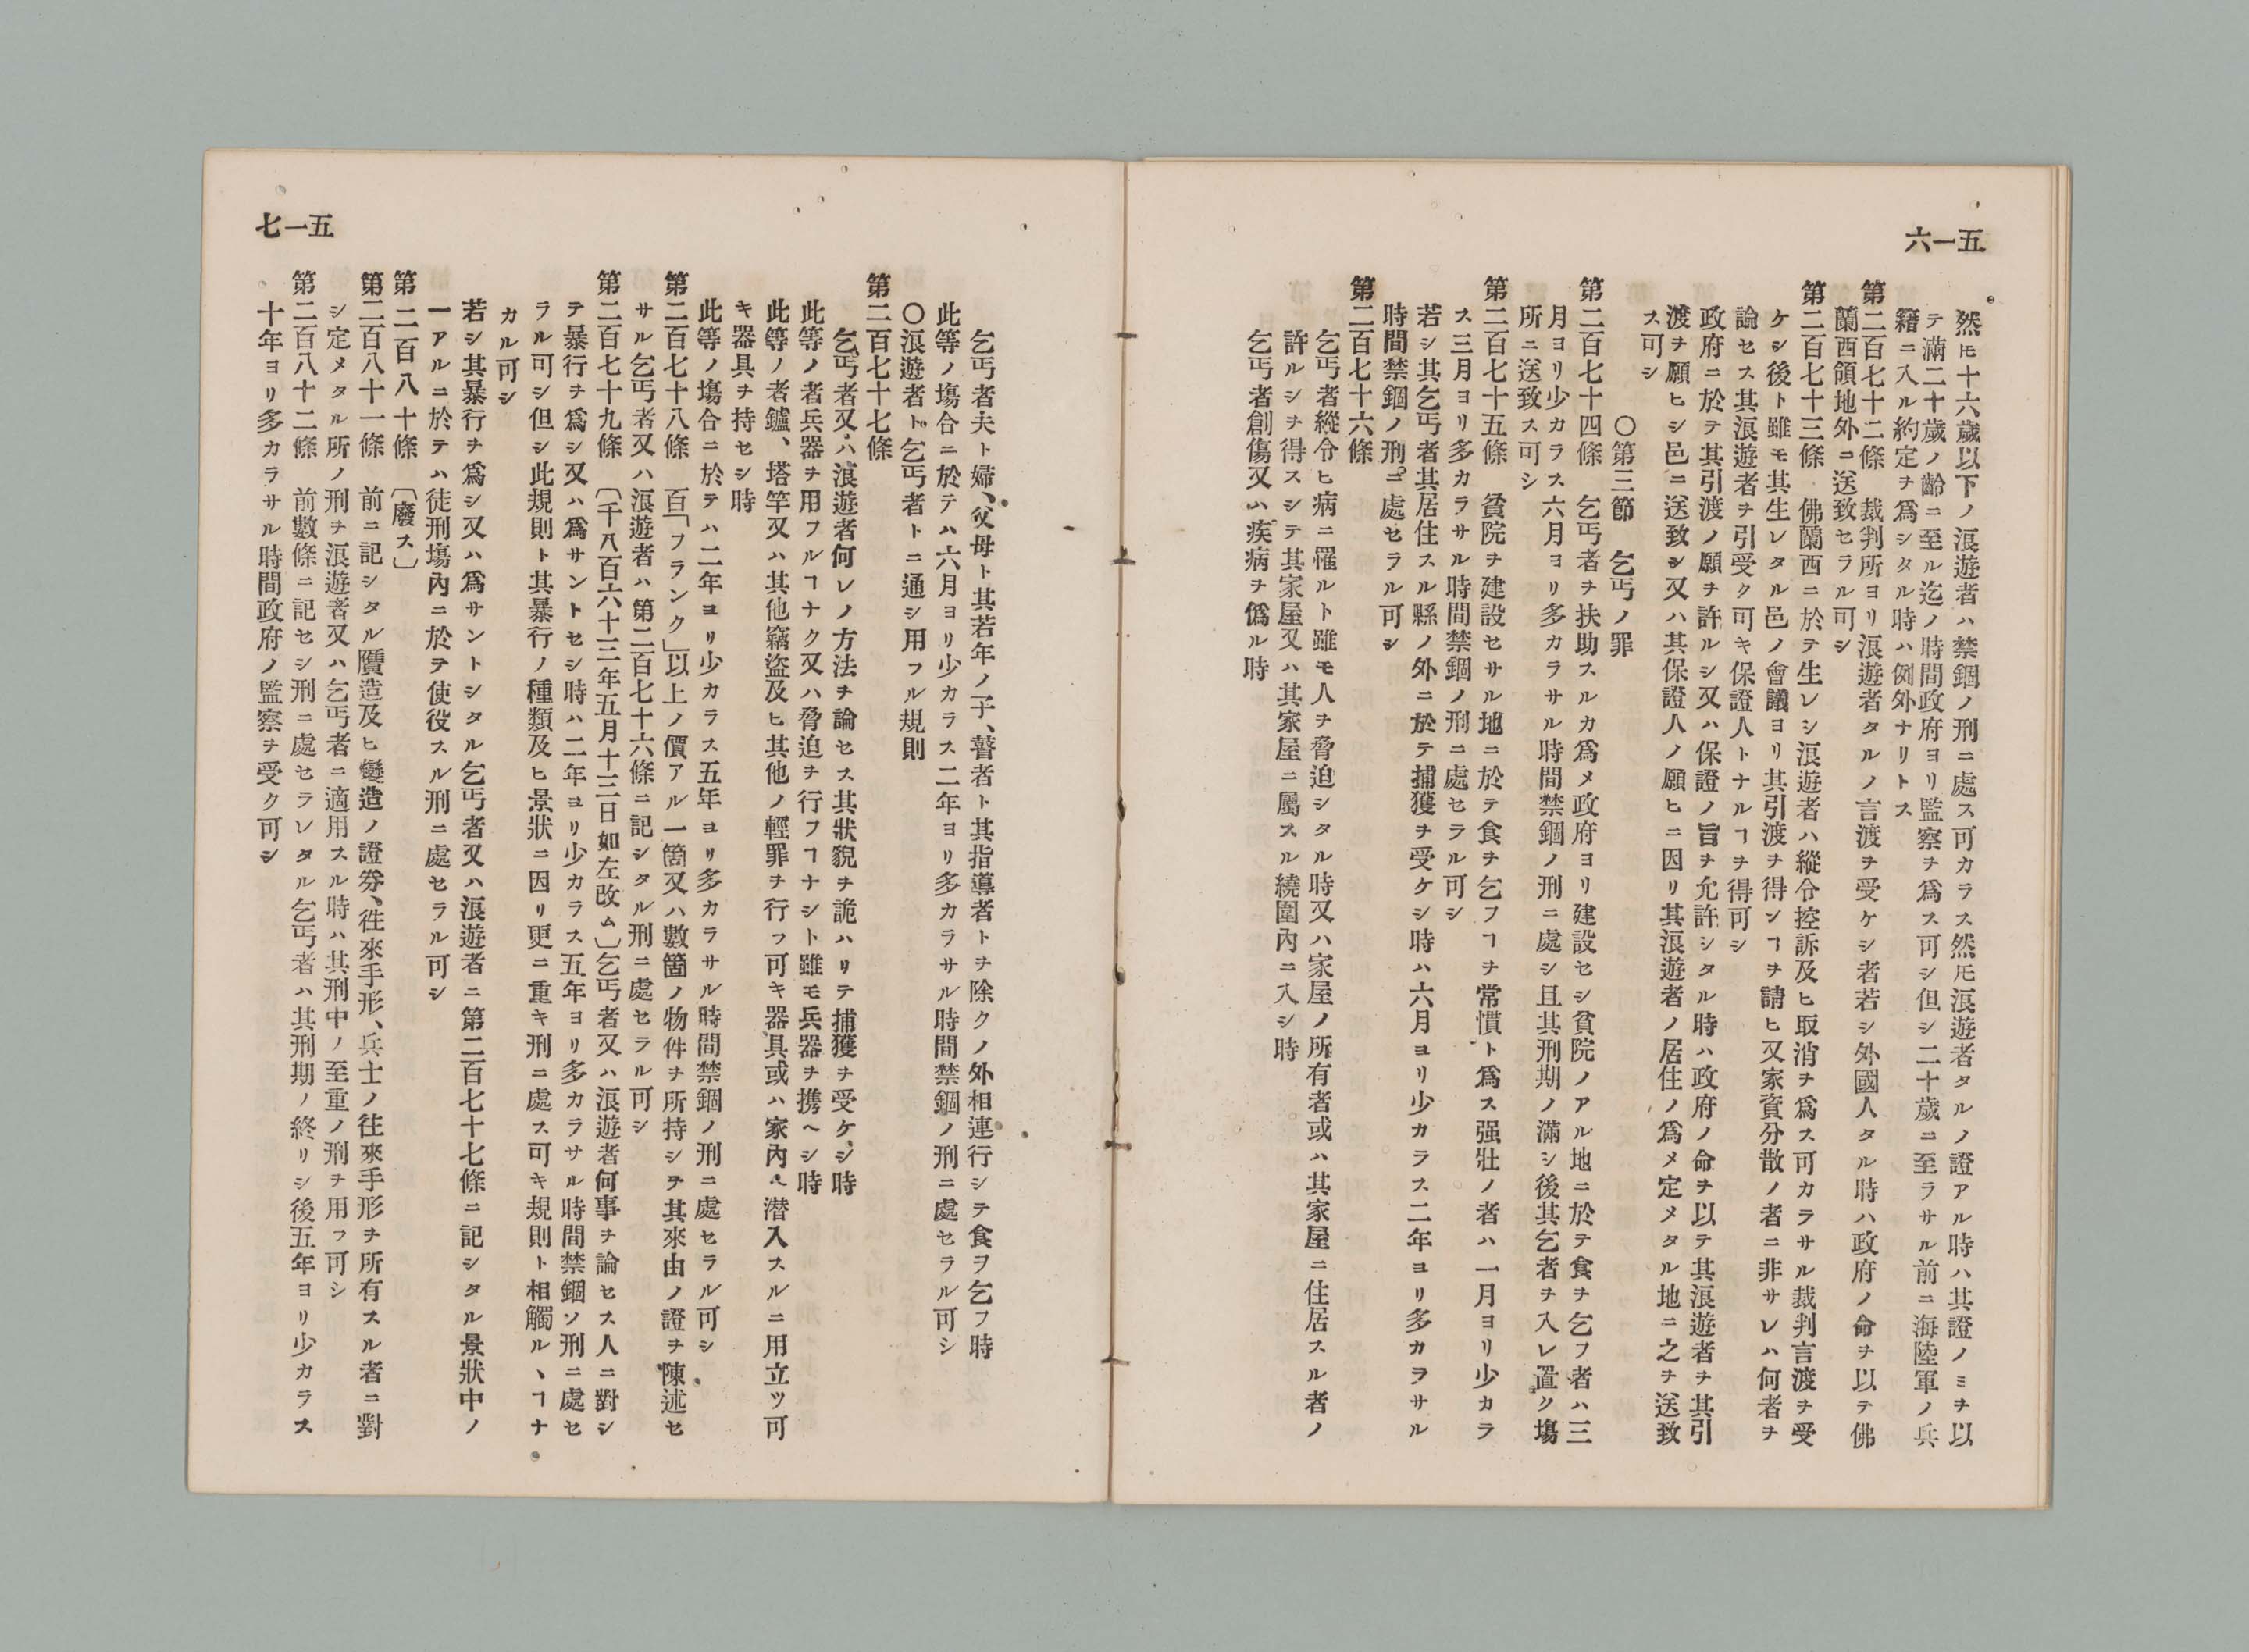 五一六
然𪜈十六歲以下ノ浪遊者ハ禁錮ノ刑ニ處ス可カラス然𪜈浪遊者タルノ證アル時ハ其證ノミヲ以
テ滿二十歲ノ齡ニ至ル迄ノ時間政府ヨリ監察ヲ爲ス可シ但シ二十歲ニ至ラサル前ニ海陸軍ノ兵
籍ニ入ル約定ヲ爲シタル時ハ例外ナリトス
第二百七十二條 裁判所ヨリ浪遊者タルノ言渡ヲ受ケシ者若シ外國人タル時ハ政府ノ命ヲ以テ佛
蘭西領地外ニ送致セラル可シ
第二百七十三條 佛蘭西ニ於テ生レシ浪遊者ハ縱令控訴及ヒ取消ヲ爲ス可カラサル裁判言渡ヲ受
ケシ後ト雖モ其生レタル邑ノ會議ヨリ其引渡ヲ得ンヿヲ請ヒ又家資分散ノ者ニ非サレハ何者ヲ
論セス其浪遊者ヲ引受ク可キ保證人トナルヿヲ得可シ
政府ニ於テ其引渡ノ願ヲ許ルシ又ハ保證ノ旨ヲ允許シタル時ハ政府ノ命ヲ以テ其浪遊者ヲ其引
渡ヲ願ヒシ邑ニ送致シ又ハ其保證人ノ願ヒニ因リ其浪遊者ノ居住ノ爲メ定メタル地ニ之ヲ送致
ス可シ
〇第三節 乞丐ノ罪
第二百七十四條 乞丐者ヲ扶助スルカ爲メ政府ヨリ建設セシ貧院ノアル地ニ於テ食ヲ乞フ者ハ三
月ヨリ少カラス六月ヨリ多カラサル時間禁錮ノ刑ニ處シ且其刑期ノ滿シ後其乞者ヲ入レ置ク塲
所ニ送致ス可シ
第二百七十五條 貧院ヲ建設セサル地ニ於テ食ヲ乞フヿヲ常慣ト爲ス强壯ノ者ハ一月ヨリ少カラ
ス三月ヨリ多カラサル時間禁錮ノ刑ニ處セラル可シ
若シ其乞丐者其居住スル縣ノ外ニ於テ捕獲ヲ受ケシ時ハ六月ヨリ少カラス二年ヨリ多カラサル
時間禁錮ノ刑ニ處セラル可シ
第二百七十六條
乞丐者縱令ヒ病ニ罹ルト雖モ人ヲ脅迫シタル時又ハ家屋ノ所有者或ハ其家屋ニ住居スル者ノ
許ルシヲ得スシテ其家屋又ハ其家屋ニ屬スル繞圍內ニ入シ時
乞丐者創傷又ハ疾病ヲ僞ル時
五一七
乞丐者夫ト婦、父母ト其若年ノ子、瞽者ト其指導者トヲ除クノ外相連行シテ食ヲ乞フ時
此等ノ塲合ニ於テハ六月ヨリ少カラス二年ヨリ多カラサル時間禁錮ノ刑ニ處セラル可シ
〇浪遊者ト乞丐者トニ通シ用フル規則
第二百七十七條
乞丐者又ハ浪遊者何レノ方法ヲ論セス其狀貌ヲ詭ハリテ捕獲ヲ受ケシ時
此等ノ者兵器ヲ用フルヿナク又ハ脅迫ヲ行フヿナシト雖モ兵器ヲ携ヘシ時
此等ノ者鑢、塔竿又ハ其他竊盜及ヒ其他ノ輕罪ヲ行フ可キ器具或ハ家內ヘ潛入スルニ用立ツ可
キ器具ヲ持セシ時
此等ノ塲合ニ於テハ二年ヨリ少カラス五年ヨリ多カラサル時間禁錮ノ刑ニ處セラル可シ
第二百七十八條 百「フランク」以上ノ價アル一箇又ハ數箇ノ物件ヲ所持シテ其來由ノ證ヲ陳述セ
サル乞丐者又ハ浪遊者ハ第二百七十六條ニ記シタル刑ニ處セラル可シ
第二百七十九條 〔千八百六十三年五月十三日如左改ム〕乞丐者又ハ浪遊者何事ヲ論セス人ニ對シ
テ暴行ヲ爲シ又ハ爲サントセシ時ハ二年ヨリ少カラス五年ヨリ多カラサル時間禁錮ソ刑ニ處セ
ラル可シ但シ此規則ト其暴行ノ種類及ヒ景狀ニ因リ更ニ重キ刑ニ處ス可キ規則ト相觸ル丶ヿナ
カル可シ
若シ其暴行ヲ爲シ又ハ爲サントシタル乞丐者又ハ浪遊者ニ第二百七十七條ニ記シタル景狀中ノ
一アルニ於テハ徒刑塲內ニ於テ使役スル刑ニ處セラル可シ
第二百八十條 〔廢ス〕
第二百八十一條 前ニ記シタル贋造及ヒ變造ノ證券、徃來手形、兵士ノ徃來手形ヲ所有スル者ニ對
シ定メタル所ノ刑ヲ浪遊者又ハ乞丐者ニ適用スル時ハ其刑中ノ至重ノ刑ヲ用フ可シ
第二百八十二條 前數條ニ記セシ刑ニ處セラレタル乞丐者ハ其刑期ノ終リシ後五年ヨリ少カラス
十年ヨリ多カラサル時間政府ノ監察ヲ受ク可シ